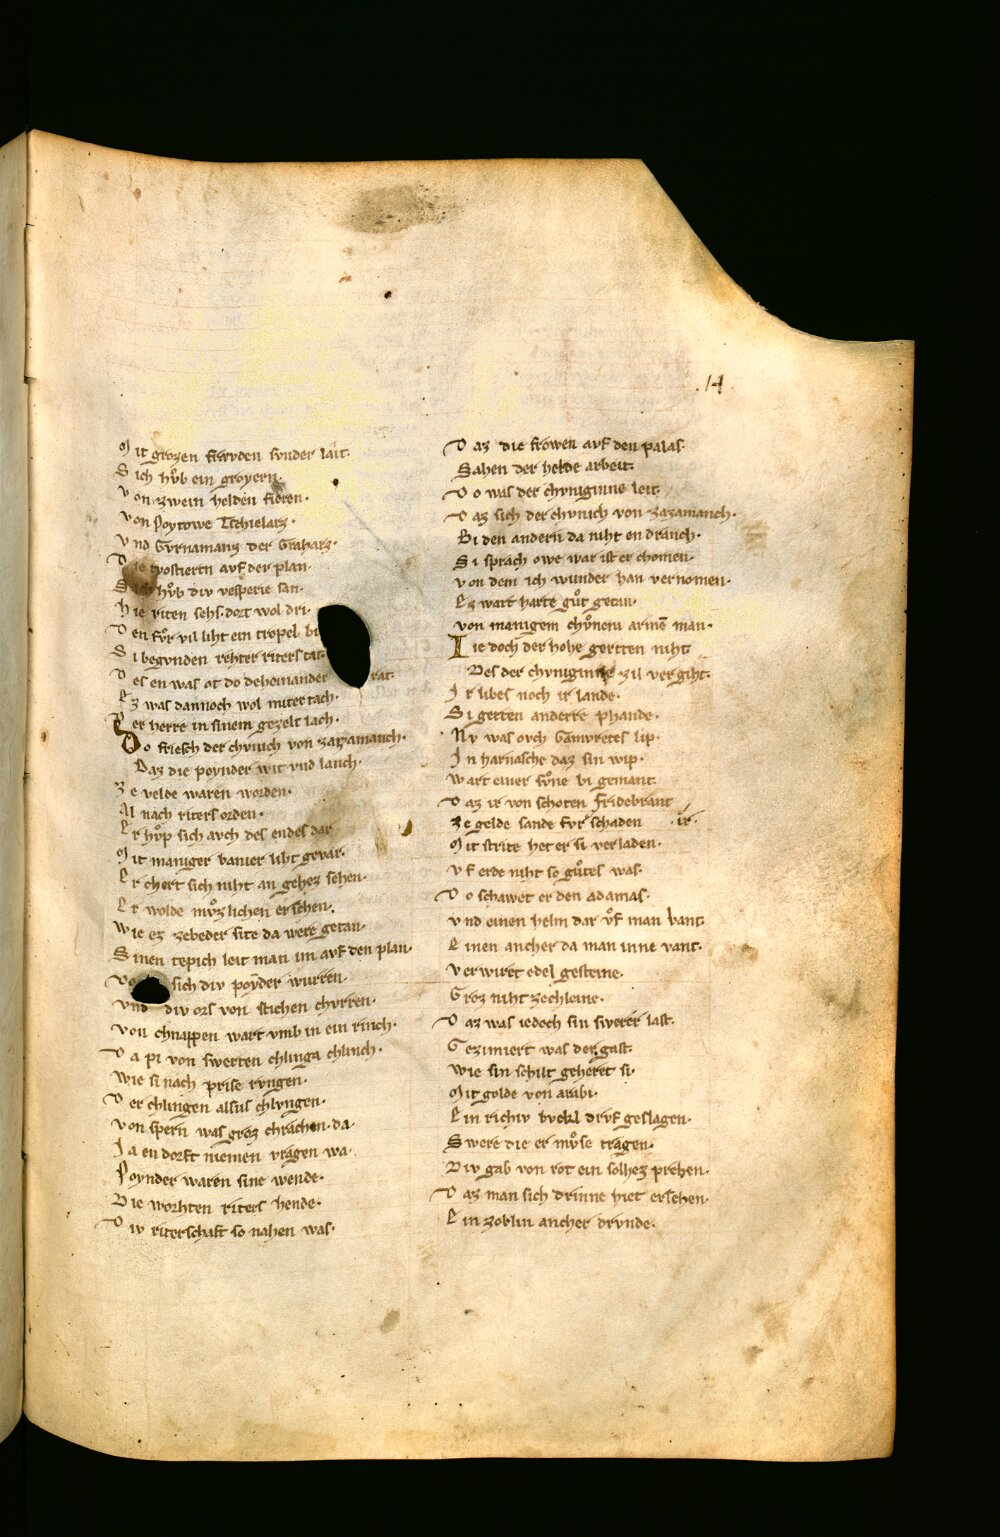 14
Mit grozen frævden svnder lait.
Sich hvͦb ein groyern.
Von zwein helden fieren.
Von Poytowe Tschielarz.
Vnd Gvrnamanz der Graharz.
Die tyostiertn avf der plan.
Sich hvͦb div vesperie san.
Hie riten sehs. dort wol dri.
Den fvͦr vil liht ein tropel bi
Si begvnden rehter riters tat.
Des en was ot do deheinander rat.
Ez was dannoch wol mitertach.
Der herre in sinem gezelt lach.
Do friesch der chvnich von zazamanch.
Daz die poynder wit vnd lanch.
Ze velde waren worden.
Al nach riters orden.
Er hvͦp sich avch des endes dar
Mit maniger banier liht gevar.
Er chert sich niht an gehez sehen.
Er wolde mvͦzlichen ersehen.
Wie ez zebeder site da were getan.
Sinen tepich leit man im avf den plan.
sich div poyder wurren.
Vnd div ors von stichen chvrren.
Von chnappen wart vmb in ein rinch.
Da pi von swerten chlinga chlinch.
Wie si nach prise rvngen.
Der chlingen alsus chlvngen.
Von spern was groz chrachen da.
Ja en dorft niemen vragen wa.
Poynder waren sine wende.
Die worhten riters hende.
Div riterschaft so nahen was.
Daz die frowen avf den palas.
Sahen der helde arbeit.
Do was der chvniginne leit.
Daz sich der chvnich von zazamanch.
Bi den andern da niht en dranch.
Si sprach owe war ist er chomen.
Von dem ich wunder han vernomen.
Ez wart harte gvͦt getan.
Von manigem chvͦnem armē man.
Iedoch der hohe gertten niht
Des der chvniginne zil vergiht.
Ir libes noch ir lande.
Si gerten anderre phande.
Nv was ovch Gamvretes lip.
In harnasche daz sin wip.
Wart einer svͦne bi gemant.
Daz ir von schoten fridebrant
Ze gelde sande fvr schaden ir.
Mit strite het er si verladen.
Vf erde niht so gvͦtes was.
Do schawet er den adamas.
Vnd einen helm dar vͦf man bant.
Einen ancher da man inne vant.
Verwiret edel gesteine.
Groz niht zechleine.
Daz was iedoch sin swerer last.
Gezimiert was der gast.
Wie sin schilt geheret si.
Mit golde von arabi.
Ein richiv bvckl drvf geslagen.
Swere die er mvͦse tragen.
Div gab von rot ein solhez prehen.
Daz man sich drinne hiet ersehen.
Ein zoblin ancher drvnde.